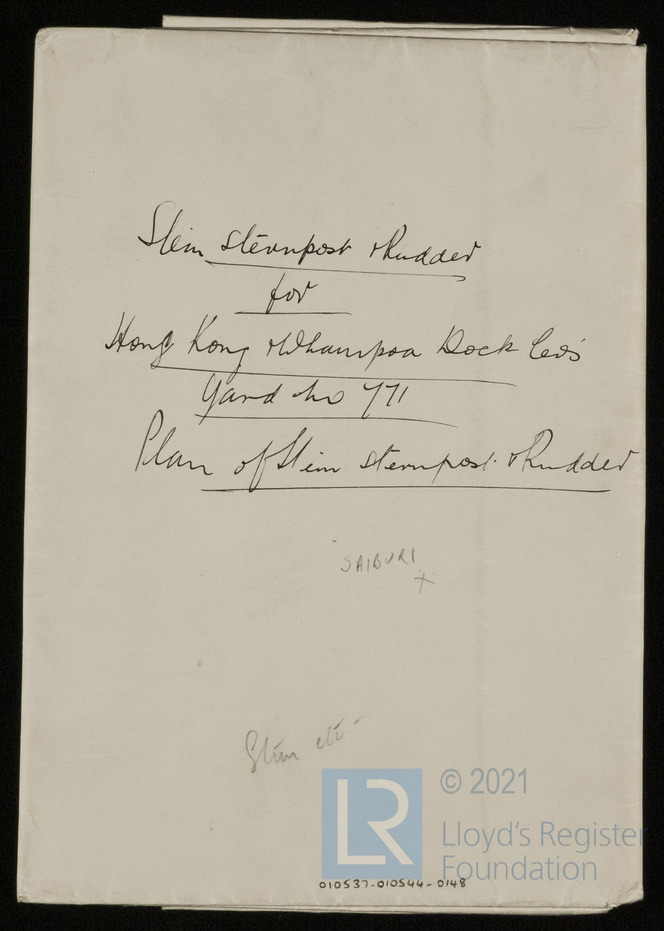 Stem sternpost & Rudder
for
Hong Kong & Whampoa Dock Co's
Yard No 771
Plan of Stem sternpost & Rudder
SAIBURI
x
Stem etc
LR
© 2021
Lloyd's Register
Foundation
010537-010544-0148